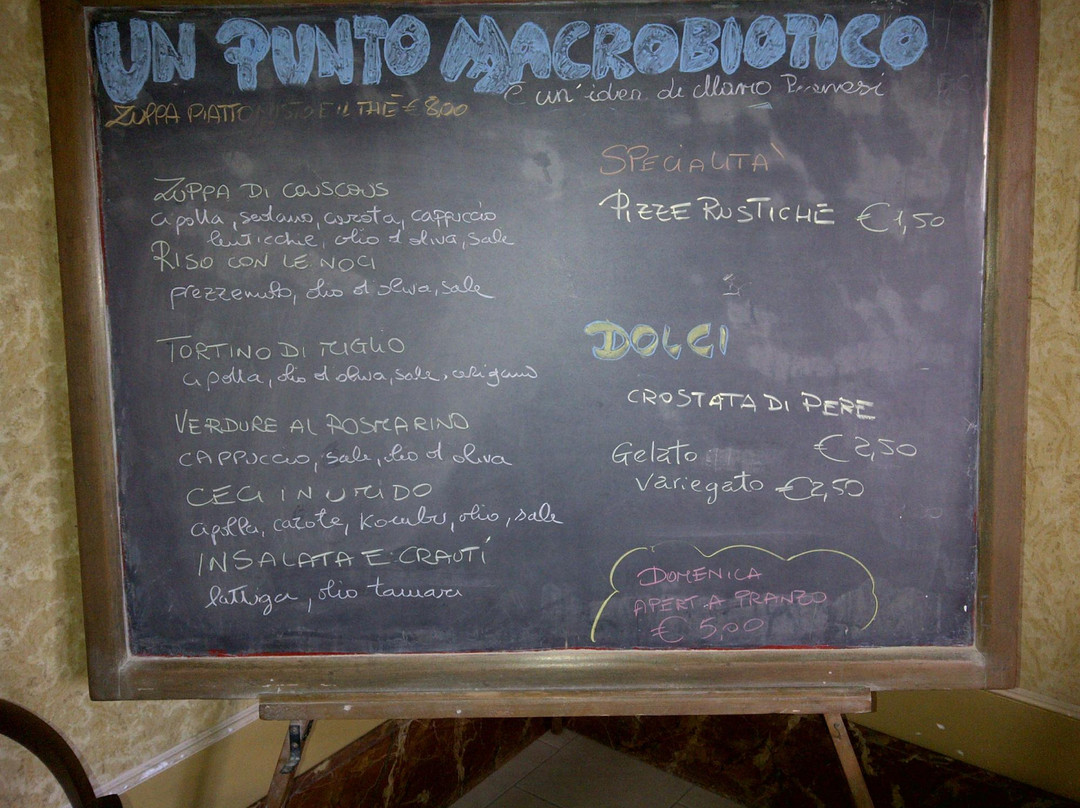 UN PUNTO MACROBIOTICO
è un'idea di Mario Pianesi
ZUPPA PIATTO MISTO E IL THÈ € 8,00
ZUPPA DI COUSCOUS
cipolla, sedano, carota, cappuccio
lenticchie, olio d'oliva, sale
RISO CON LE NOCI
prezzemolo, olio d'oliva, sale
TORTINO DI MIGLIO
cipolla, olio d'oliva, sale, origano
VERDURE AL ROSMARINO
CAPPUCCIO, sale, olio d'oliva
CECI IN UMIDO
cipolla, carote, Kombu, olio, sale
INSALATA E CRAUTI
lattuga, olio tamari
SPECIALITA'
PIZZE RUSTICHE € 1,50
DOLCI
CROSTATA DI PERE
€ 2,50
Gelato
variegato € 2,50
DOMENICA
APERT A PRANZO
€ 5,00